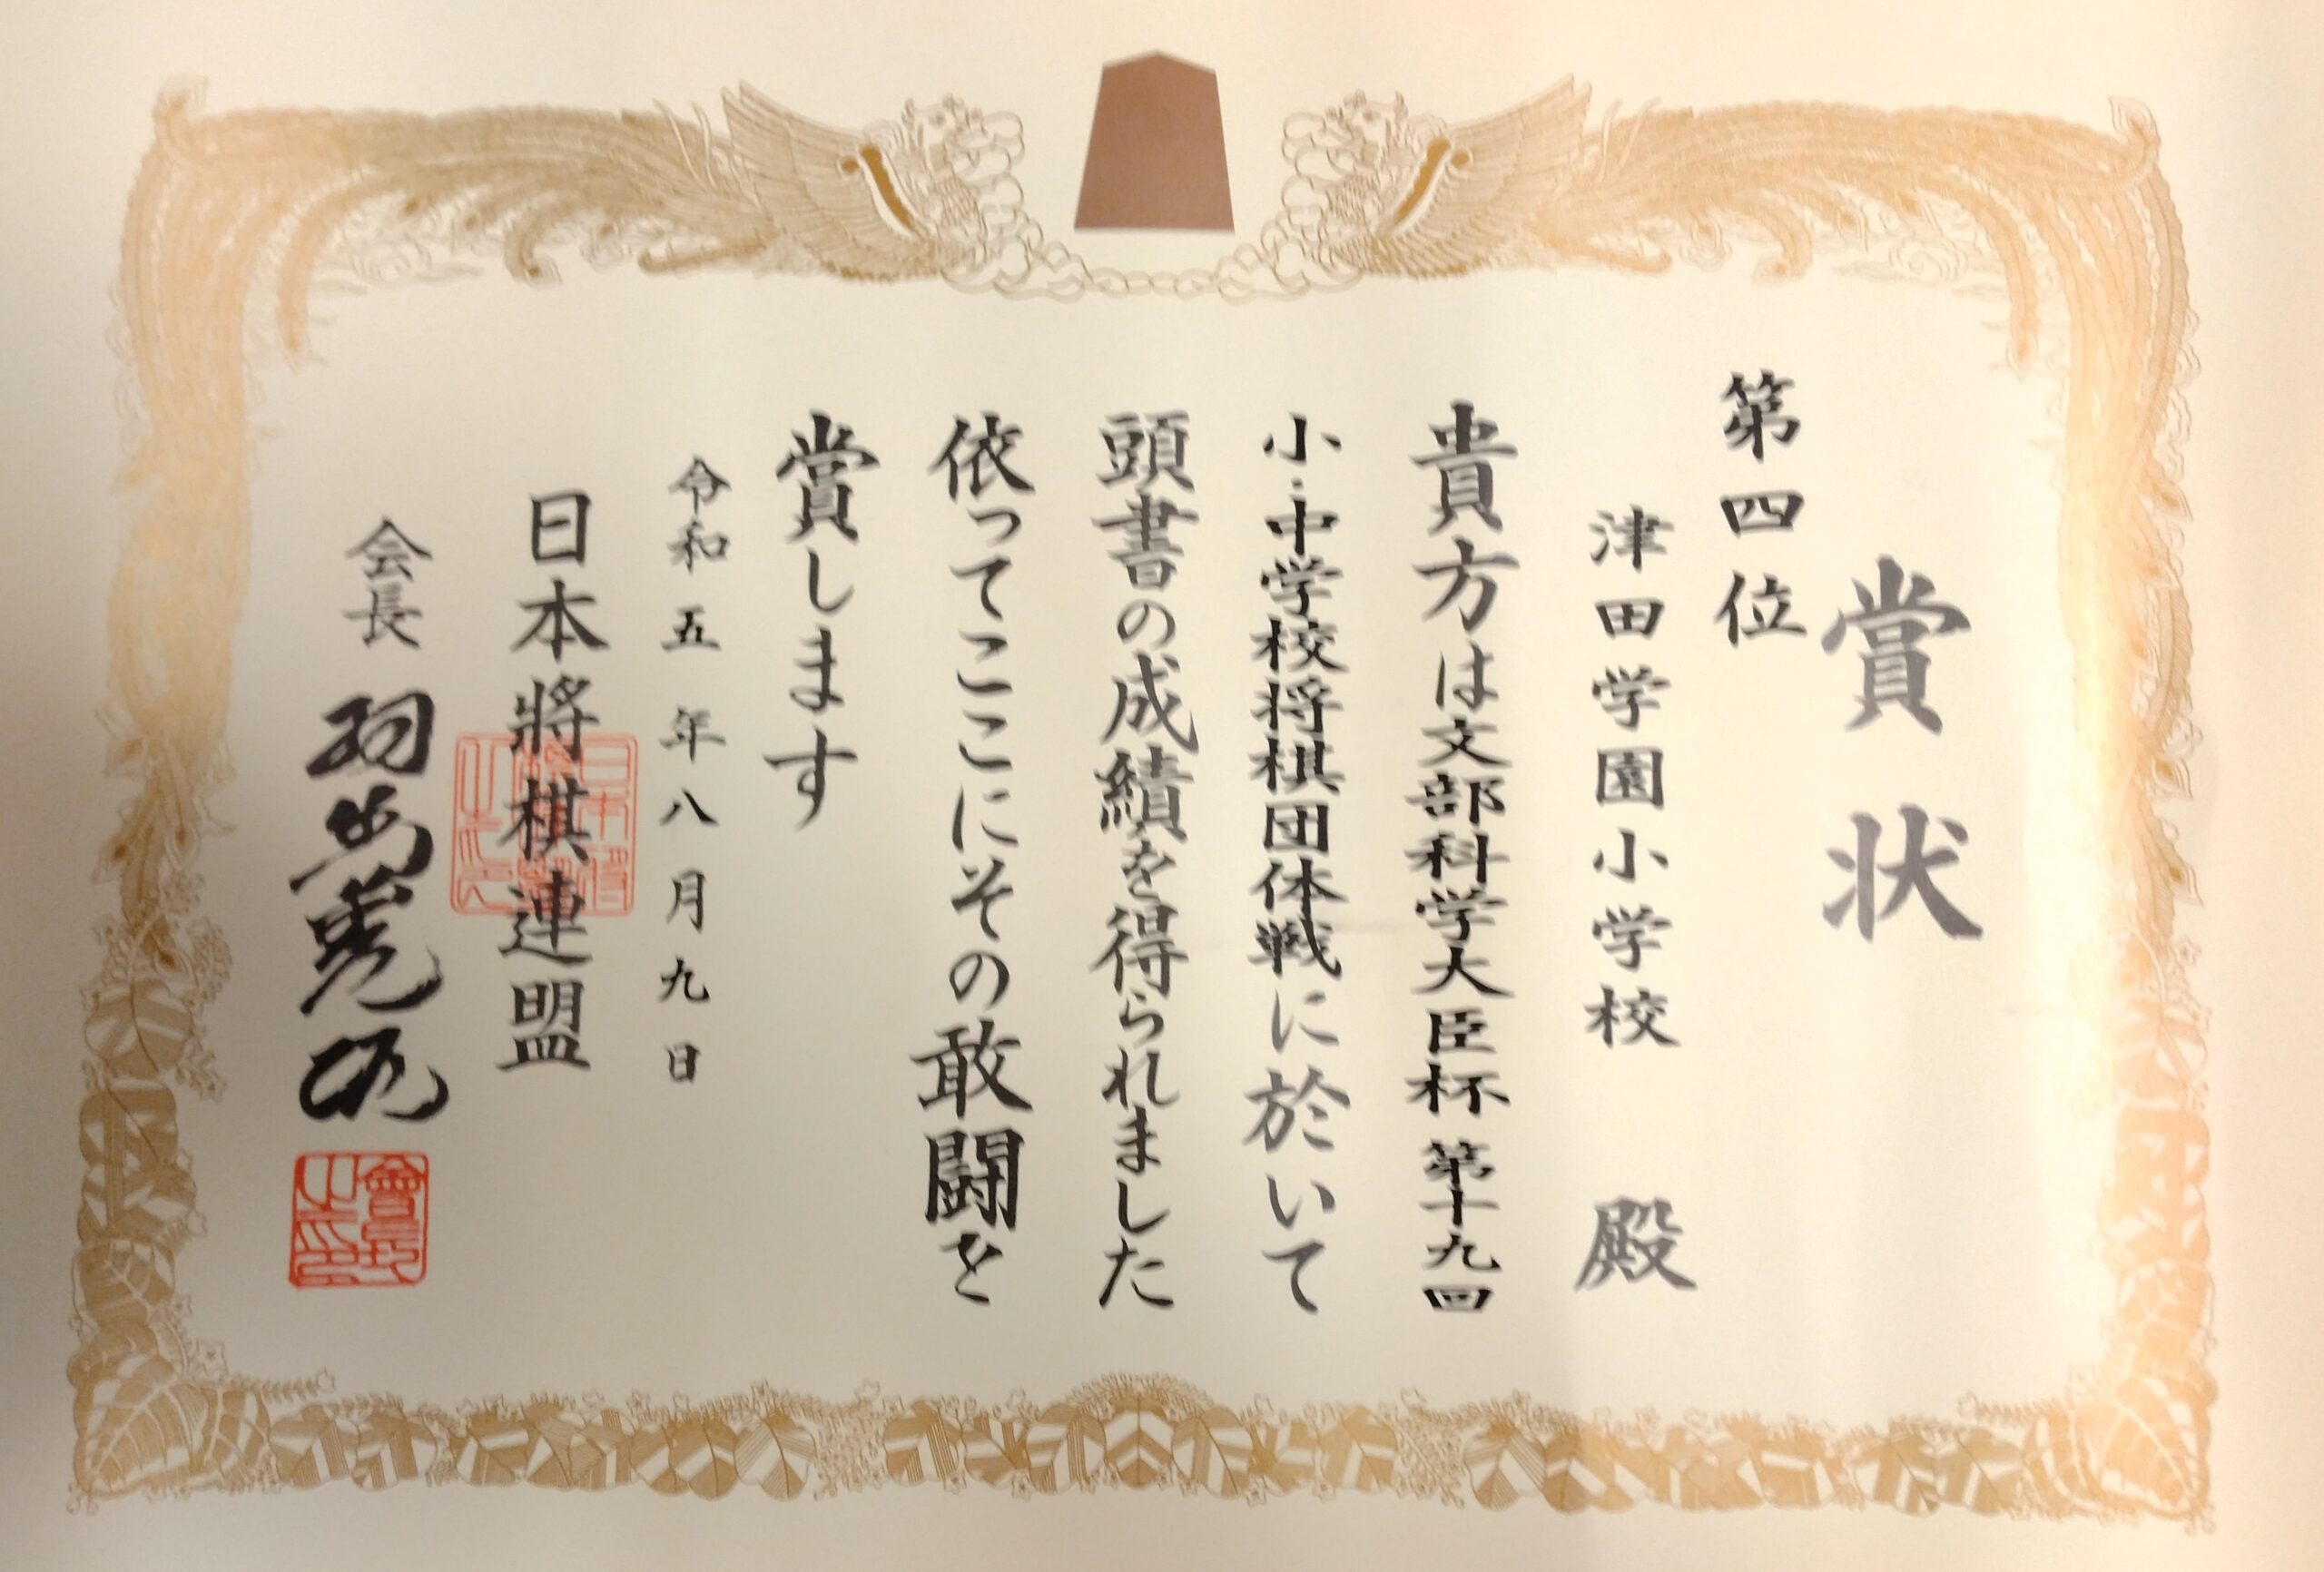 賞状
第四位
津田学園小学校 殿
貴方は文部科学大臣杯第十九回
小・中学校将棋団体戦に於いて
頭書の成績を得られました
依ってここにその敢闘を
賞します
令和五年八月九日
日本將棋連盟
会長 羽生善治